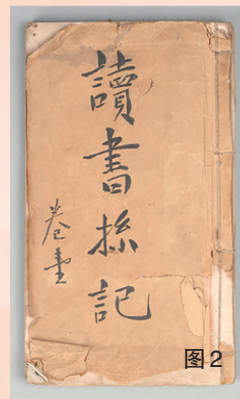 讀書孫記
卷壹
图2